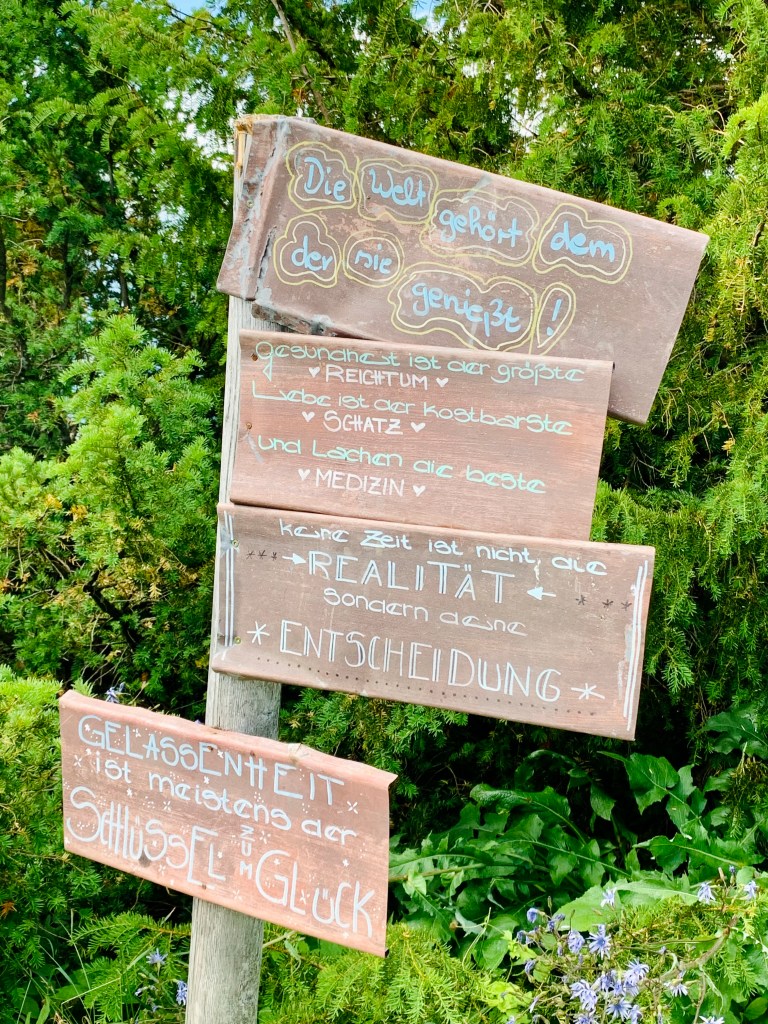 Die Welt gehört dem
der sie
genießt!
Gesundheit ist der größte
♥ REICHTUM ♥
Liebe ist der kostbarste
♥ SCHATZ ♥
und Lachen die beste
♥ MEDIZIN ♥
Keine Zeit ist nicht die
REALITÄT
sondern deine
ENTSCHEIDUNG
GELASSENHEIT
ist meistens der
SCHLÜSSEL ZUM GLÜCK